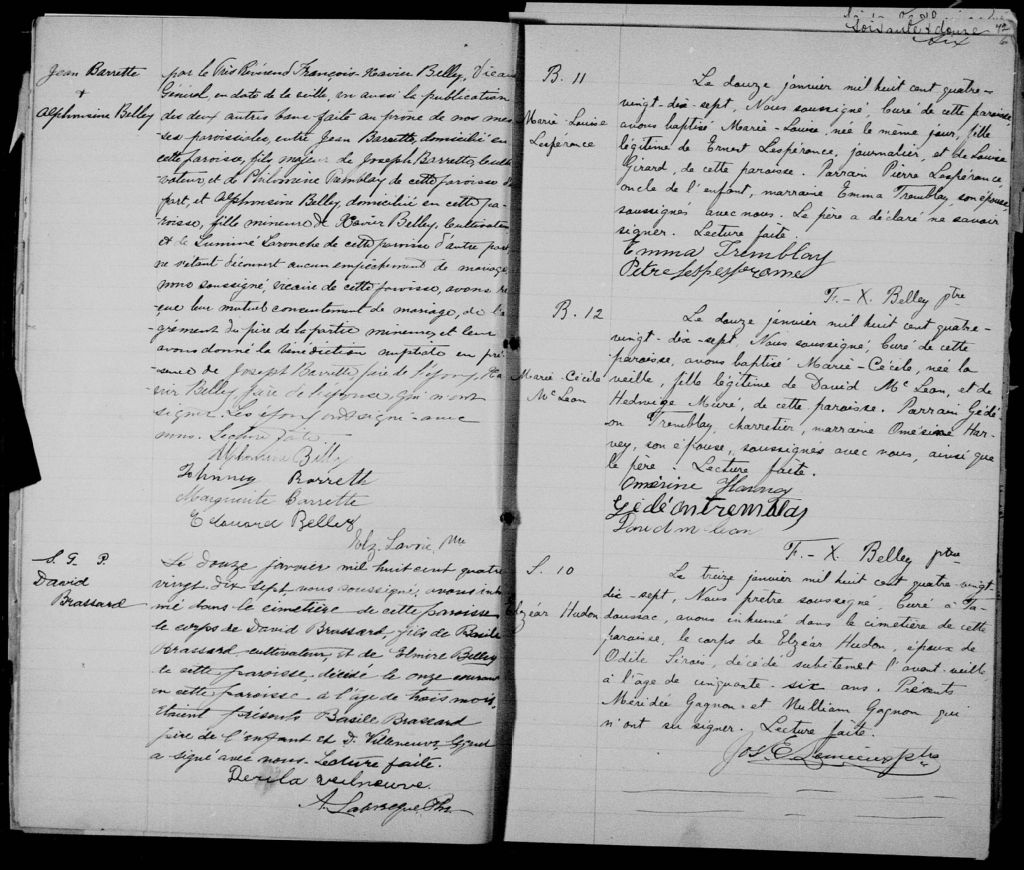 Jean Barrette
+
Alphonsine Belley
par le Très Révérend François-Xavier Belley, Vicaire
Général, en date de la veille, vu aussi la publication
des deux autres bans faite au prône de nos mes-
-ses paroissiales, entre Jean Barrette, domicilié en
cette paroisse, fils majeur de Joseph Barrette, culti-
vateur, et de Philomène Tremblay de cette paroisse d'
part, et Alphonsine Belley, domicilié en cette pa-
-roisse, fille mineure de Xavier Belley, cultivateur
et de Luminé Larouche de cette paroisse d'autre part
ne s'étant découvert aucun empêchement de mariage,
nous soussigné, vicaire de cette paroisse, avons re-
-çu leur mutuel consentement de mariage, de l'a-
-grément du père de la partie mineure, et leur
avons donné la bénédiction nuptiale en pré-
-sence de Joseph Barrette père de l'époux, Xa-
vier Belley père de l'épouse qui n'ont
signer. Les époux ont signé avec
nous. Lecture faite.
Alphonsine Billy
Johnney Barreth
Marguerite Barrette
Edouard Belley
Elz. Lavoie, Ptre
S. G. P.
David
Brassard
Le douze janvier mil huit cent quatre
vingt-dix sept nous soussigné, avons inhu-
mé dans le cimetière de cette paroisse
le corps de David Brassard, fils de Basile
Brassard cultivateur, et de Elmire Belley
de cette paroisse, décédé le onze courant
en cette paroisse à l'âge de trois mois.
Etaient présents Basile Brassard
père de l'enfant et D. Villeneuve qui
a signé avec nous. Lecture faite.
Derila veilneuve.
A. Labrecque Ptre
Soixante & douze
Six
72
6
B. 11
Marie-Louise
Lespérence
Le douze janvier mil huit cent quatre-
vingt-dix-sept, Nous soussigné, Curé de cette paroisse,
avons baptisé Marie-Louise, née le même jour, fille
légitime de Ernest Lespérance, journalier, et de Louise
Girard, de cette paroisse. Parrain Pierre Lespérance,
oncle de l'enfant, marraine Emma Tremblay, son épouse,
soussignés avec nous. Le père a déclaré ne savoir
signer. Lecture faite.
Emma Tremblay
F.-X. Belley ptre
B. 12
Marie-Cécile
Mc Lean
Le douze janvier mil huit cent quatre-
-vingt-dix-sept, Nous soussigné, Curé de cette
paroisse, avons baptisé Marie-Cécile, née la
veille, fille légitime de David Mc Lean, et de
Hedwige Muré, de cette paroisse. Parrain Gédé
on Tremblay, charretier, marraine Omésine Har-
vey, son épouse, soussignés avec nous, ainsi que
le père. Lecture faite.
Omésine Harvey
Gédéontremblay
David m lean
F.-X. Belley ptre
S. 10
Elzéar Hudon
Le treize janvier mil huit cent quatre-vingt-
dix-sept, Nous prêtre soussigné, Curé à Ta-
doussac, avons inhumé dans le cimetière de cette
paroisse, le corps de Elzéar Hudon, époux de
Odile Sirois, décédé subitement l'avant-veille
à l'âge de cinquante-six ans. Présents
Méridée Gagnon et William Gagnon qui
n'ont su signer. Lecture faite.
Jos. E. Lemieux ptre